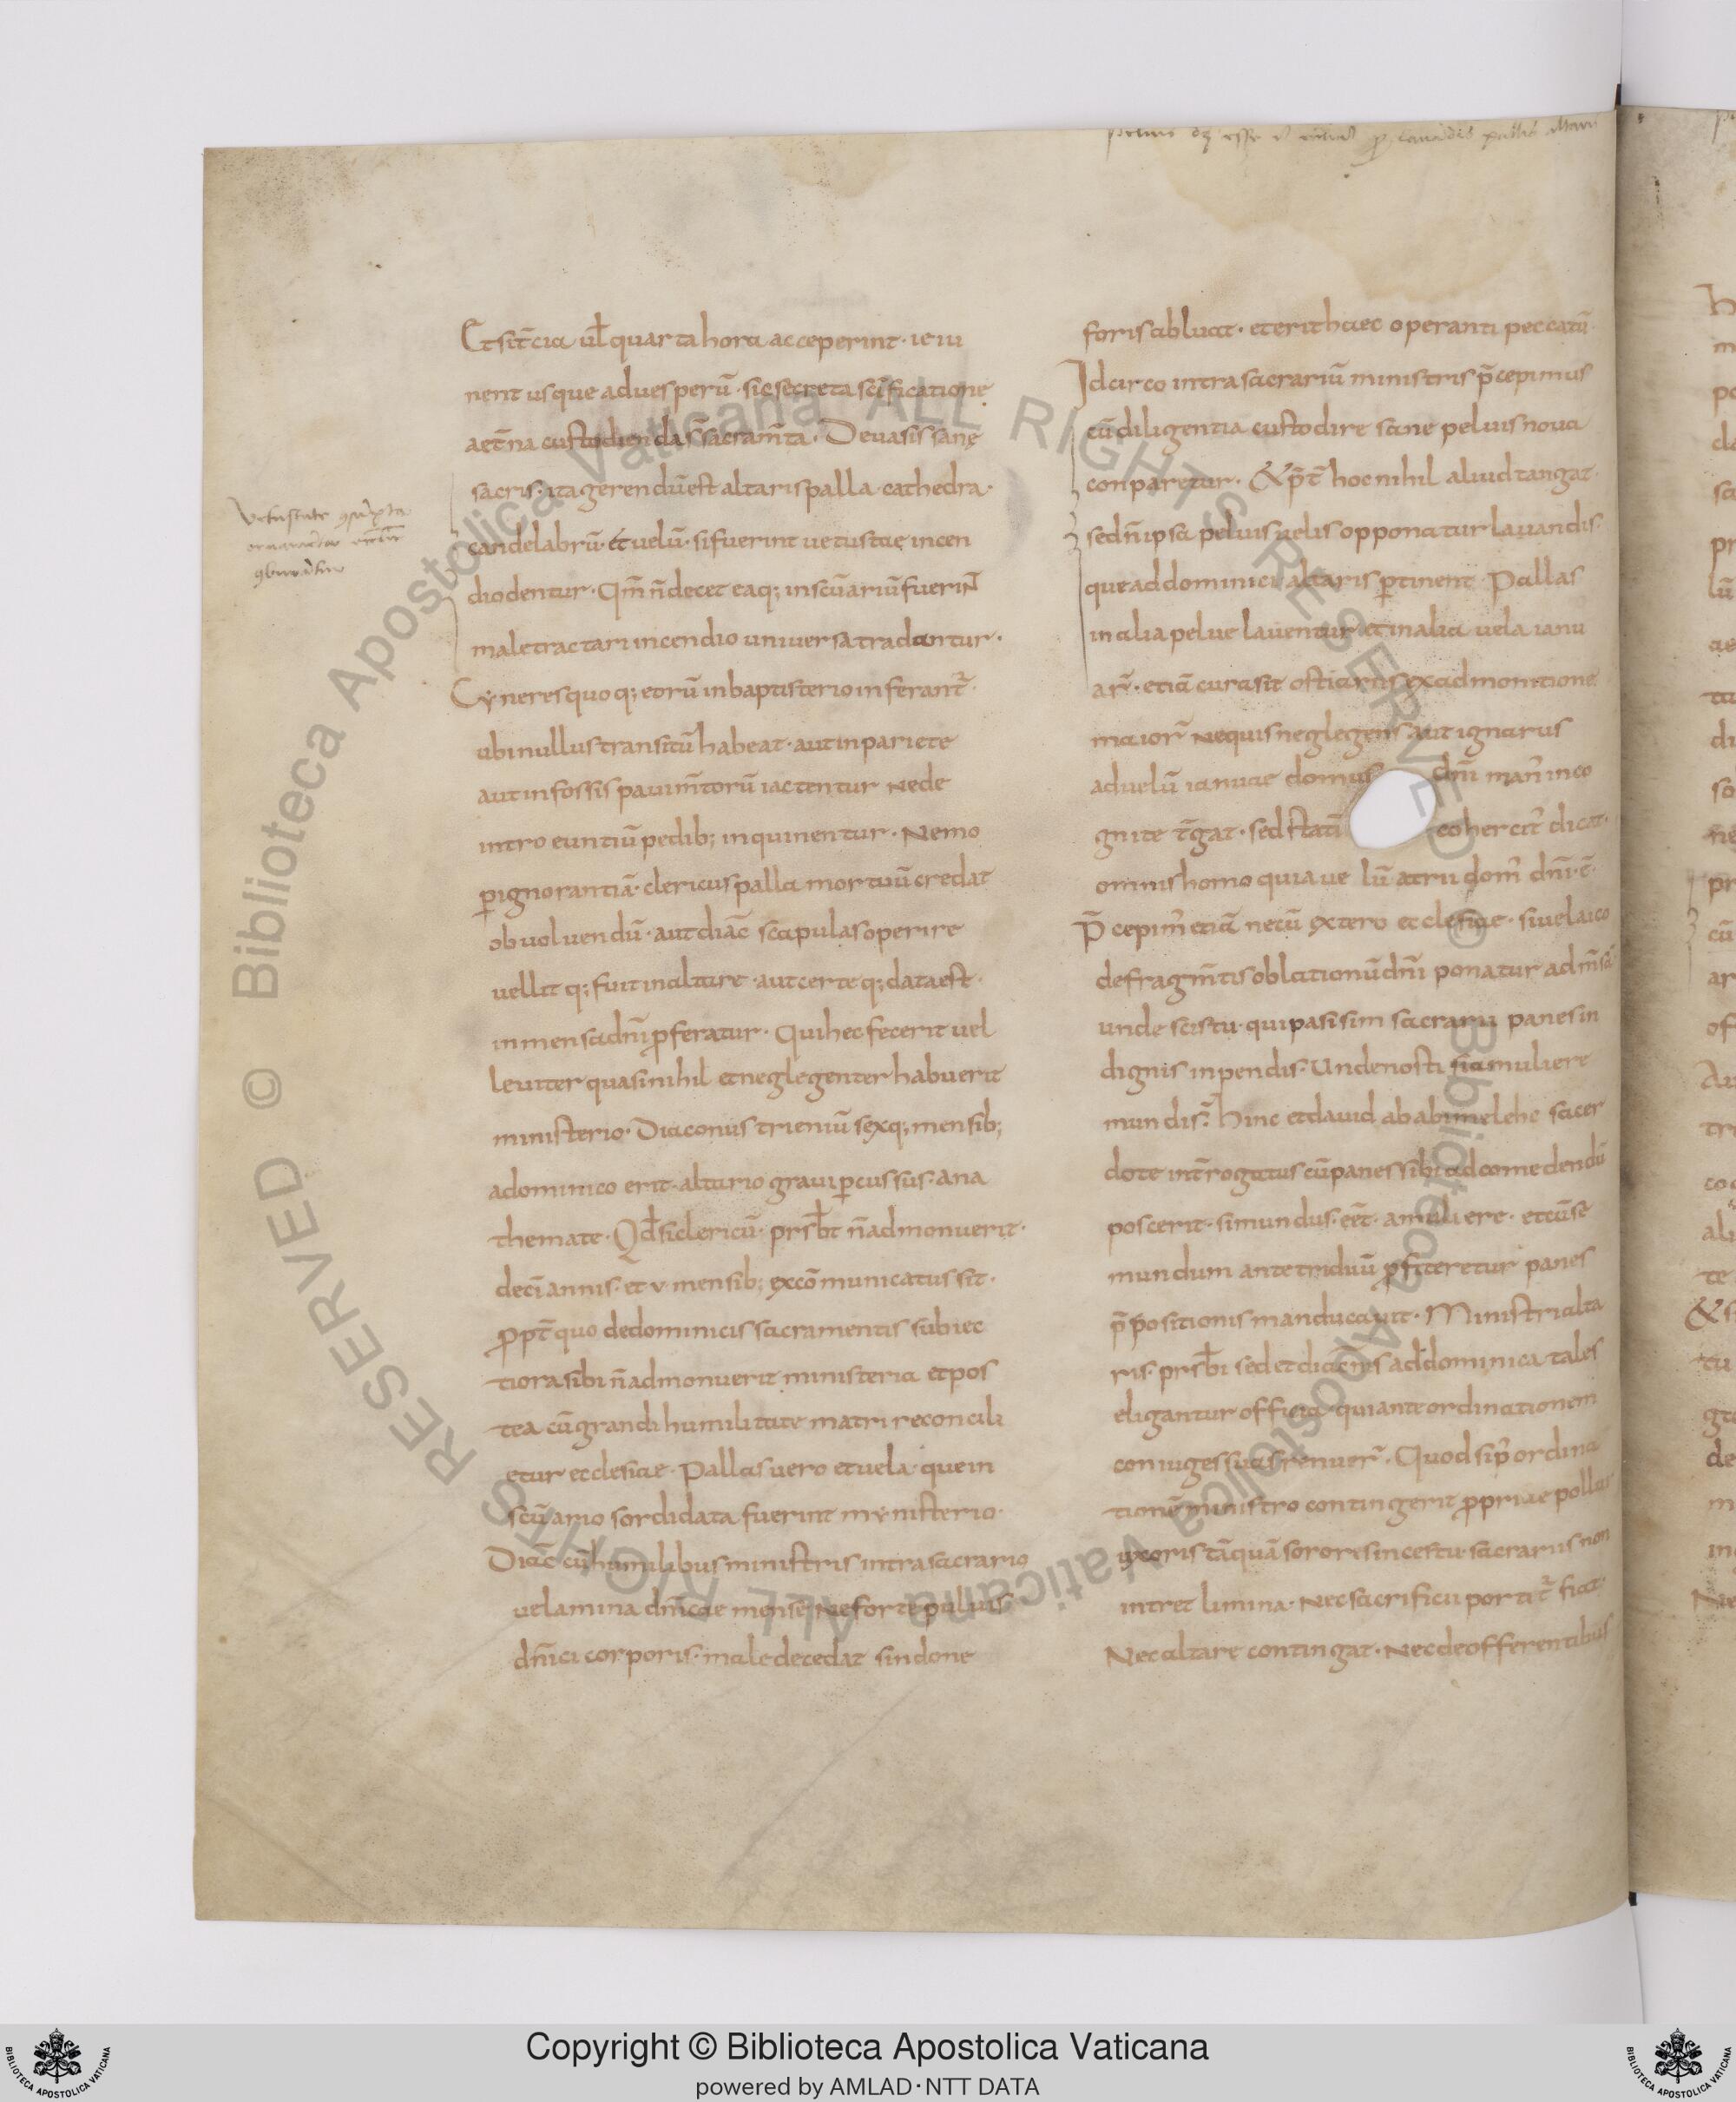 Et sit̄ cia ul̄ quarta hora acceperint· ieiu
nent usque ad uesperū· sic secreta sc̄ificatione
aet̄na custodienda s̄ sacram̄ta· De uasis sane
sacris· ita gerendū est altaris palla cathedra·
candelabrū· et uelū· si fuerint uetustaę incen
dio dentur· Qm̄ n̄ decet eaq; in sc̄uariū fuerint̄
male tractari incendio universa tradantur·
Cyneres quoq; eorū in baptisterio inferant̄·
ubi nullus transitū habeat· aut in pariete
aut in fossis pauim̄torū iactentur Ne de
introeuntiū pedib; inquinentur· Nemo
p̱ ignorantiā· clericus palla mortuū credat
obuoluendū· aut diāc̄ scapulas operire
uellit q; fuit in altare· aut certe q; data est·
in mensa dn̄i p̱feratur· Qui hec fecerit uel
leuiter quasi nihil et neglegenter habuerit
ministerio· Diaconus trieniū sexq; mensib;
a dominico erit· altario graui p̱cussus· ana
themate· Qd̄ si clericū· prsb̄t n̄ admonuerit·
decī annis· et v· mensib; excōmunicatus sit·
p̱pt̄ quo de dominicis sacramentis subiec
tiora sibi n̄ admonuerit ministeria et pos
tea cū grandi humilitate matri reconcili
etur ecclesiae· Pallas uero et uela· que in
sc̄uario sordidata fuerint mynisterio·
Diāc̄ cū humilibus ministris intra sacrario
uelamina dn̄icae mense Ne forte puluis
dn̄ici corporis· male decedat sindone
foris abluat· et erit haec operanti peccatū
Idcirco intra sacrariū ministris p̄cepimus
cū diligentia custodire sane peluis noua
conparetur· & p̄t̄ hoc nihil aliud tangat·
sed n̄ ipsa peluis uelis opponatur lauandis·
que ad dominici altaris p̱tinent· Pallas
in alia pelue lauentur et in alia uela ianu
ar̄· etiā cura sit ostiariis ex admonitione
maior̄ Ne quis neglegens aut ignarus
ad uelū ianuae domus dn̄i man̄ inco
gnite t̄gat· sed statī cohercit̄ dicat·
omnis homo quia ue lū atrii dom̄ dn̄i· ē·
P̄cepim̄ etiā ne cū extero ecclesiae· siue laico
de fragm̄tis oblationū dn̄i ponatur ad m̄sā
unde scis tu· qui passim sacrarii panes in
dignis inpendis· Unde nosti si a muliere
mundis· Hinc et dauid ab abimelehc sacer
dote int̄rogatus cū panes sibi ad comedendū
poscerit· si mundus· eēt· a muliere· et cū sē
mundum ante triduū p̱fiteretur panes
p̄positionis manducauit· Ministri alta
ris· prsb̄i sed et diacn̄is ad dominica tales
eligantur officia· qui ante ordinationem
coniuges suas renuer̄· Quod si p̄ ordina
tionē ministro contingerit p̱priae pollui
uxoris tāquā sororis incestu· sacrariis non
intret limina· Nec sacrificii portit̄ fiat·
Nec altare contingat· Nec de offerentibus
© Biblioteca Apostolica Vaticana ALL RIGHTS RESERVED
Copyright © Biblioteca Apostolica Vaticana
powered by AMLAD·NTT DATA
BIBLIOTECA APOSTOLICA VATICANA
BIBLIOTECA APOSTOLICA VATICANA